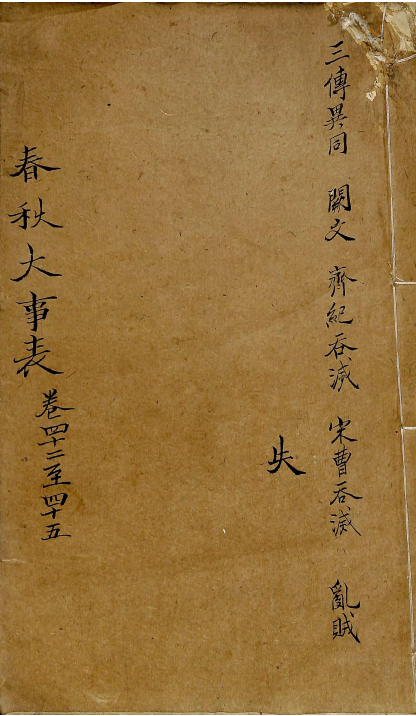 三傳異同　闕文　齊紀吞滅　宋曹吞滅　亂賊
失
春秋大事表　卷四十二至四十五